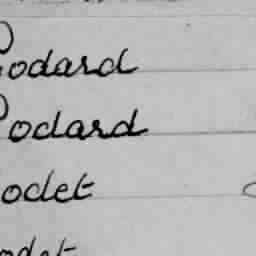 Podard
Podard
odet
odet